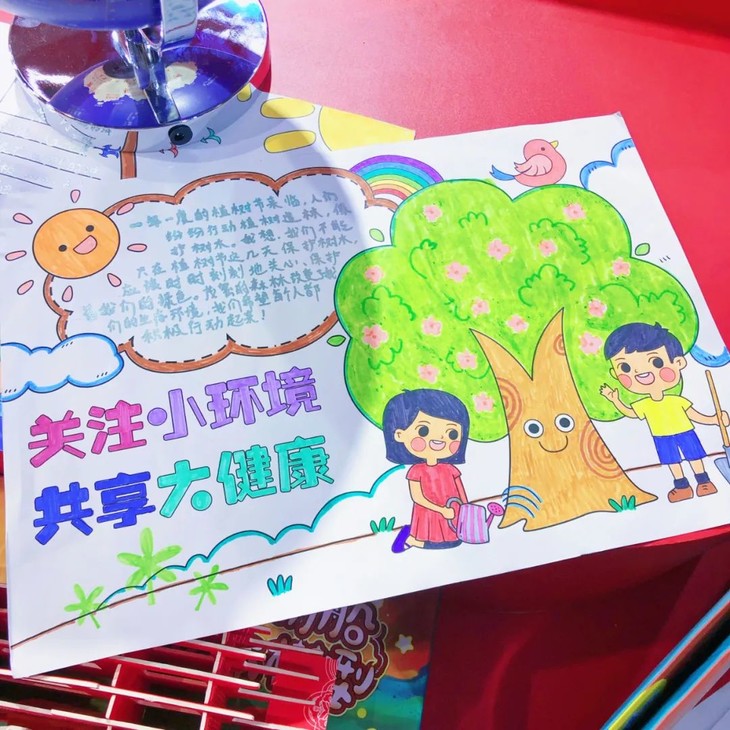 一年一度的植树节来临,人们
纷纷行动植树造林,保
护树木。我想,我们不能
只在植树节这几天保护树木,
应该时时刻刻地关心、保护
着我们的绿色。
们的生活环境,我们希望每个人都
积极行动起来!
关注·小环境
共享大健康